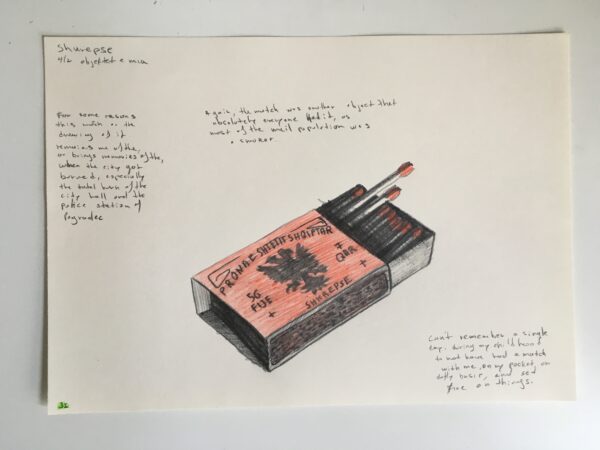 Shkrepse
4/2 objektet e mia
For some reasons
this match or the
drawing of it
remains me of the,
or brings memories of the,
when the city got
burned, especially
the total burn of the
city hall and the
police station of
Pogradec
Again, the match was another object that
absolutely everyone had it, as
most of the mail population was
a smoker
PRONA E SHTETIT SHQIPTAR
50
FIJE
7
QDR
SHKREPSE
Can't remember a single
day during my childhood
to not have had a match
with me, on my pocket, on
daily basis, and set
fire on things.
32